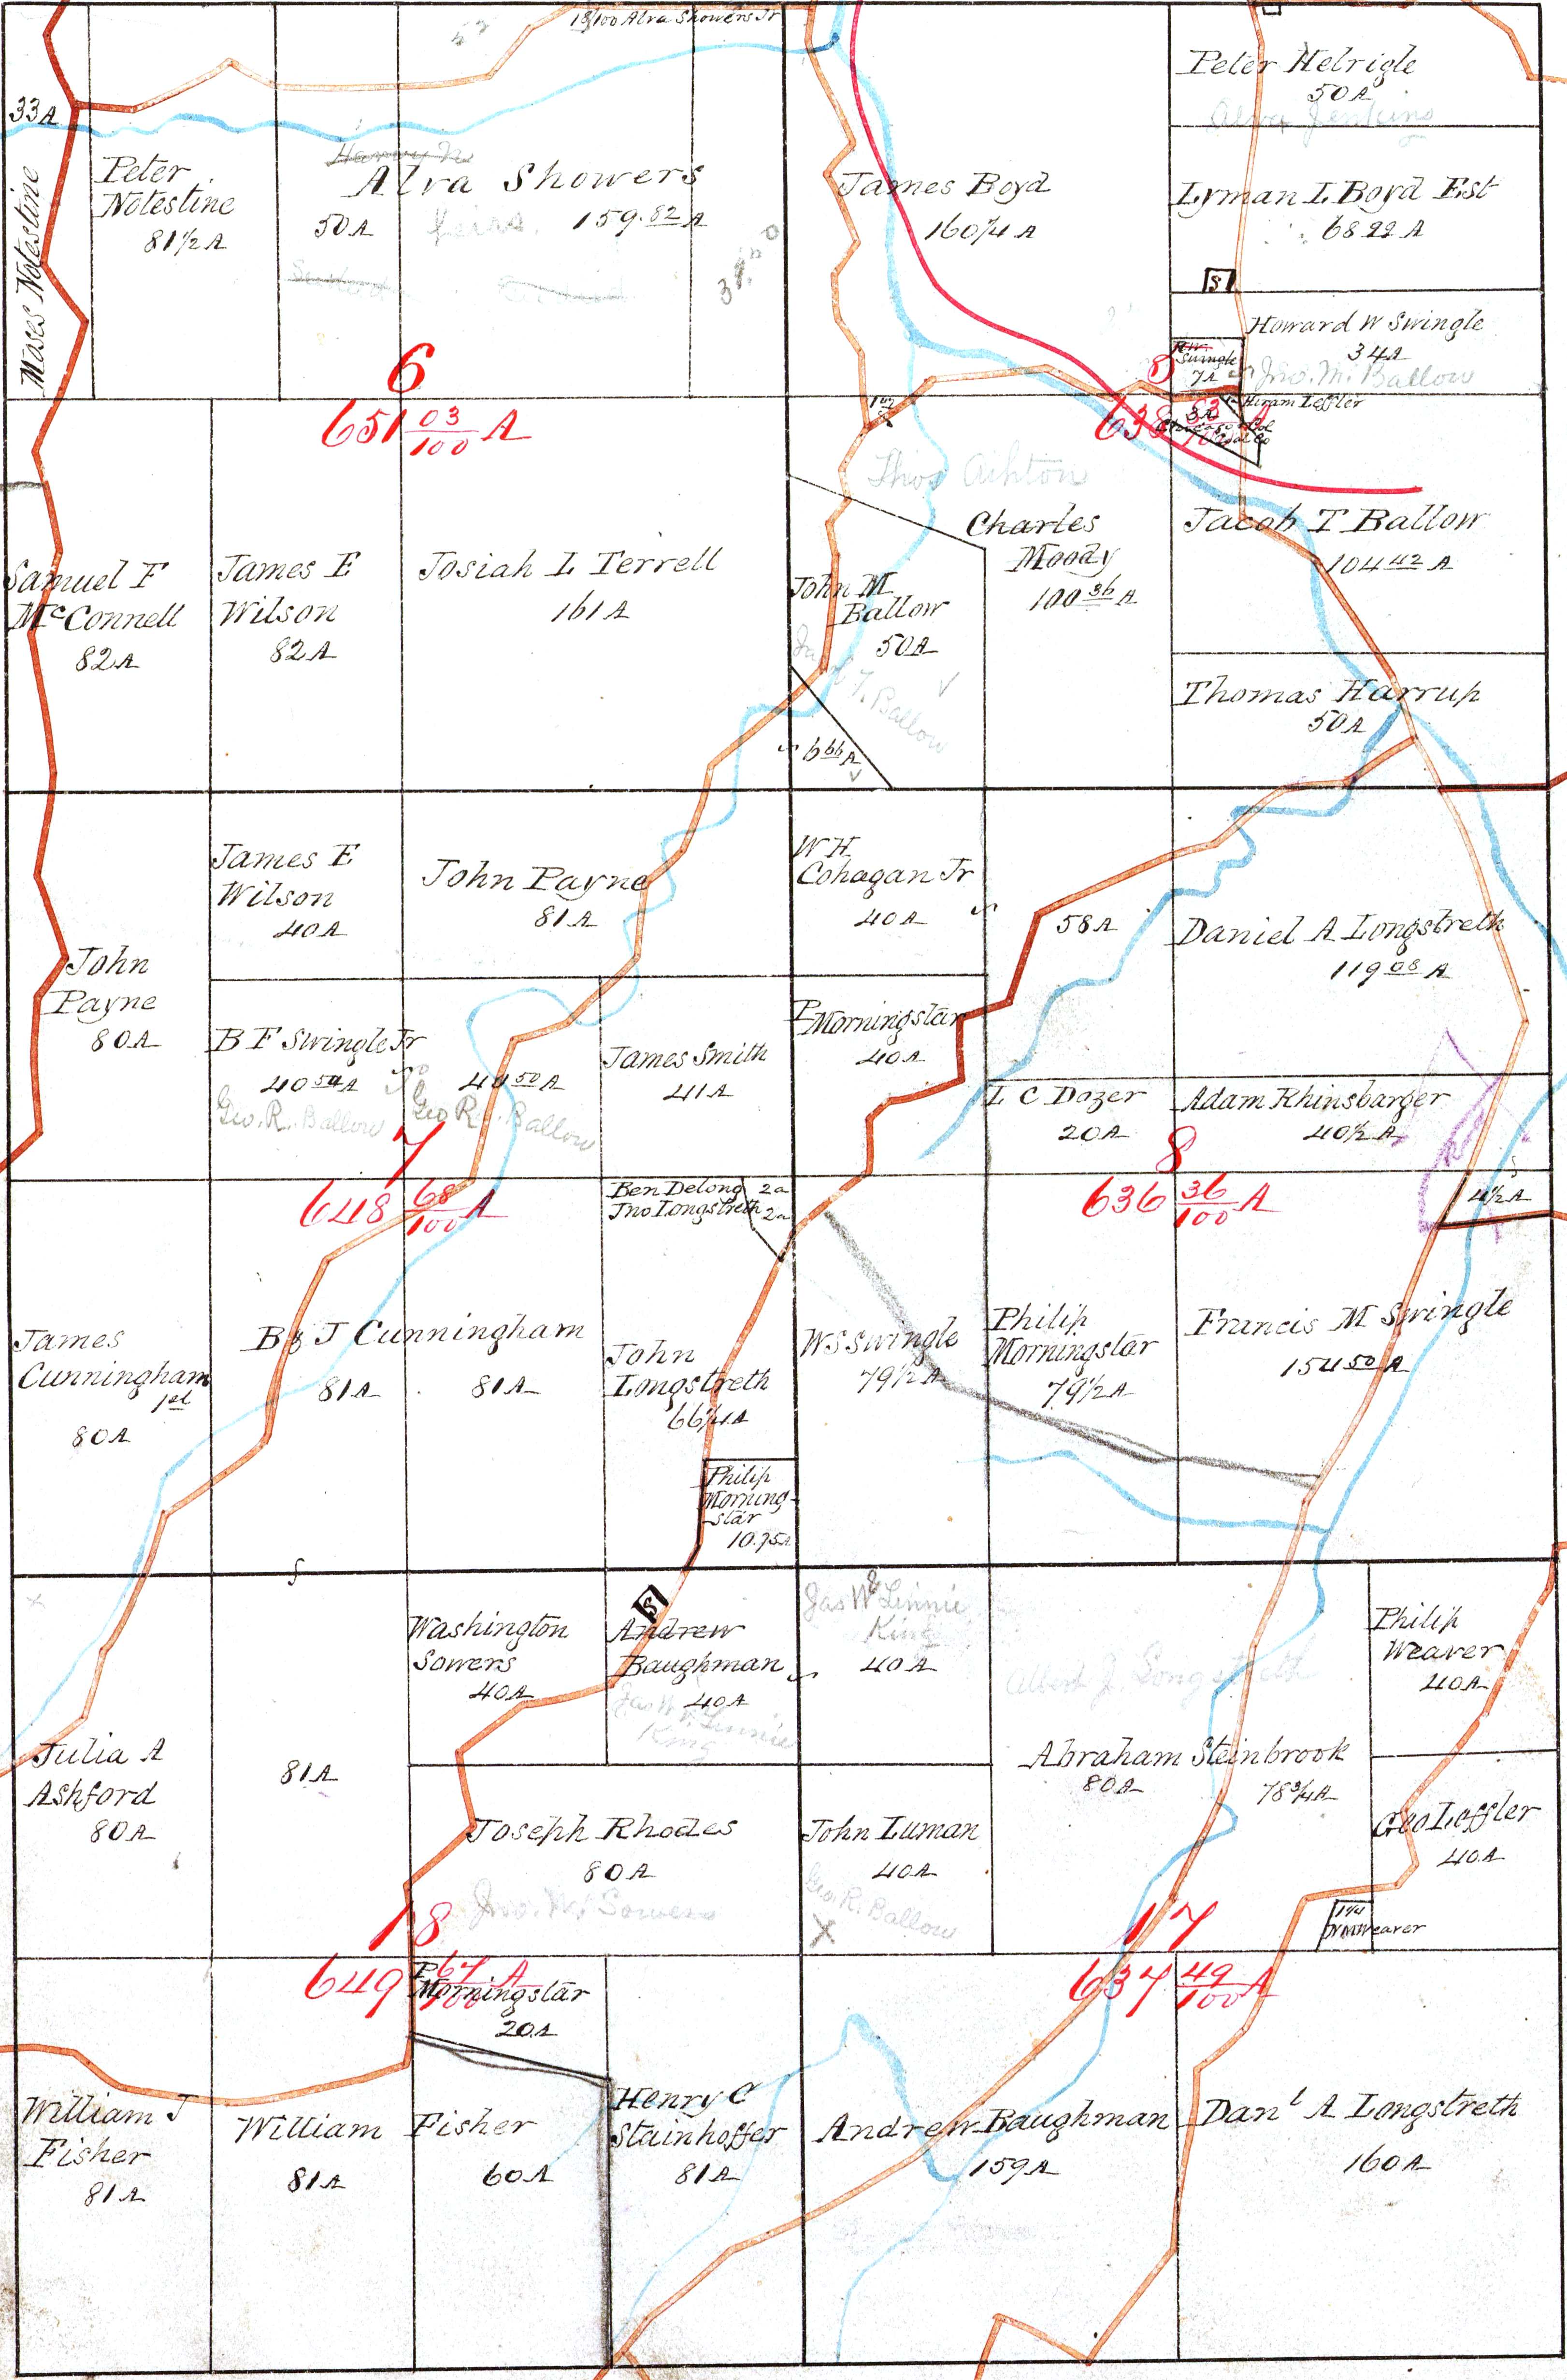 18/100 Alva Showers Jr
33A
Moses Notestine
Peter
Notestine
81 1/2 A
Harvey
Alva Showers
50A
heirs.
159.82 A
James Boyd
160 1/4 A
Peter Helrigle
50A
Alva Jenkins
Lyman L Boyd Est
68 22 A
S
Howard W Swingle
34A
Jno. M. Ballow
H.W.
Swingle
7A
Hiram Leffler
3A
6
651 03/100 A
638 A
Thos Ashton
Samuel F
McConnell
82A
James E
Wilson
82A
Josiah L Terrell
161A
John M
Ballow
50A
T. Ballow
6 66 A
Charles
Moody
100 36 A
Jacob T Ballow
104 42 A
Thomas Harrup
50A
John
Payne
80A
James E
Wilson
40A
John Payne
81A
W H
Cohagan Jr
40A
58A
Daniel A Longstreth
119 08 A
B F Swingle Jr
40 50 A
40 50 A
Geo. R. Ballow
Geo R. Ballow
James Smith
41A
P
Morningstar
40A
L C Dozer
20A
Adam Rhinsbarger
40 1/2 A
7
648 68/100 A
8
636 36/100 A
4 1/2 A
Ben Delong 2a
Jno Longstreth 2a
James
Cunningham
1st
80A
B & J Cunningham
81A
81A
John
Longstreth
66 1/4 A
Philip
Morning-
star
10.75A
W S Swingle
79 1/2 A
Philip
Morningstar
79 1/2 A
Francis M Swingle
154 50 A
Julia A
Ashford
80A
81A
Washington
Sowers
40A
S
Andrew
Baughman
40A
Jas W & Linnie
King
Jas W & Linnie
King
40A
Albert J. Longstreth
Abraham Steinbrook
80A
78 3/4 A
Philip
Weaver
40A
Geo Leffler
40A
Joseph Rhodes
80A
Jno. W. Sowers
John Luman
40A
Geo. R. Ballow
X
18
649 67/100 A
17
637 49/100 A
P
Morningstar
20A
William J
Fisher
81A
William Fisher
81A
60A
Henry C
Stainhoffer
81A
Andrew Baughman
159A
Danl A Longstreth
160A